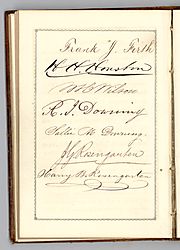 Frank J. Firth
H. H. Houston
R. J. Downing
Sallie M. Downing.
J. G. Rosengarten
Harry B. Rosengarten